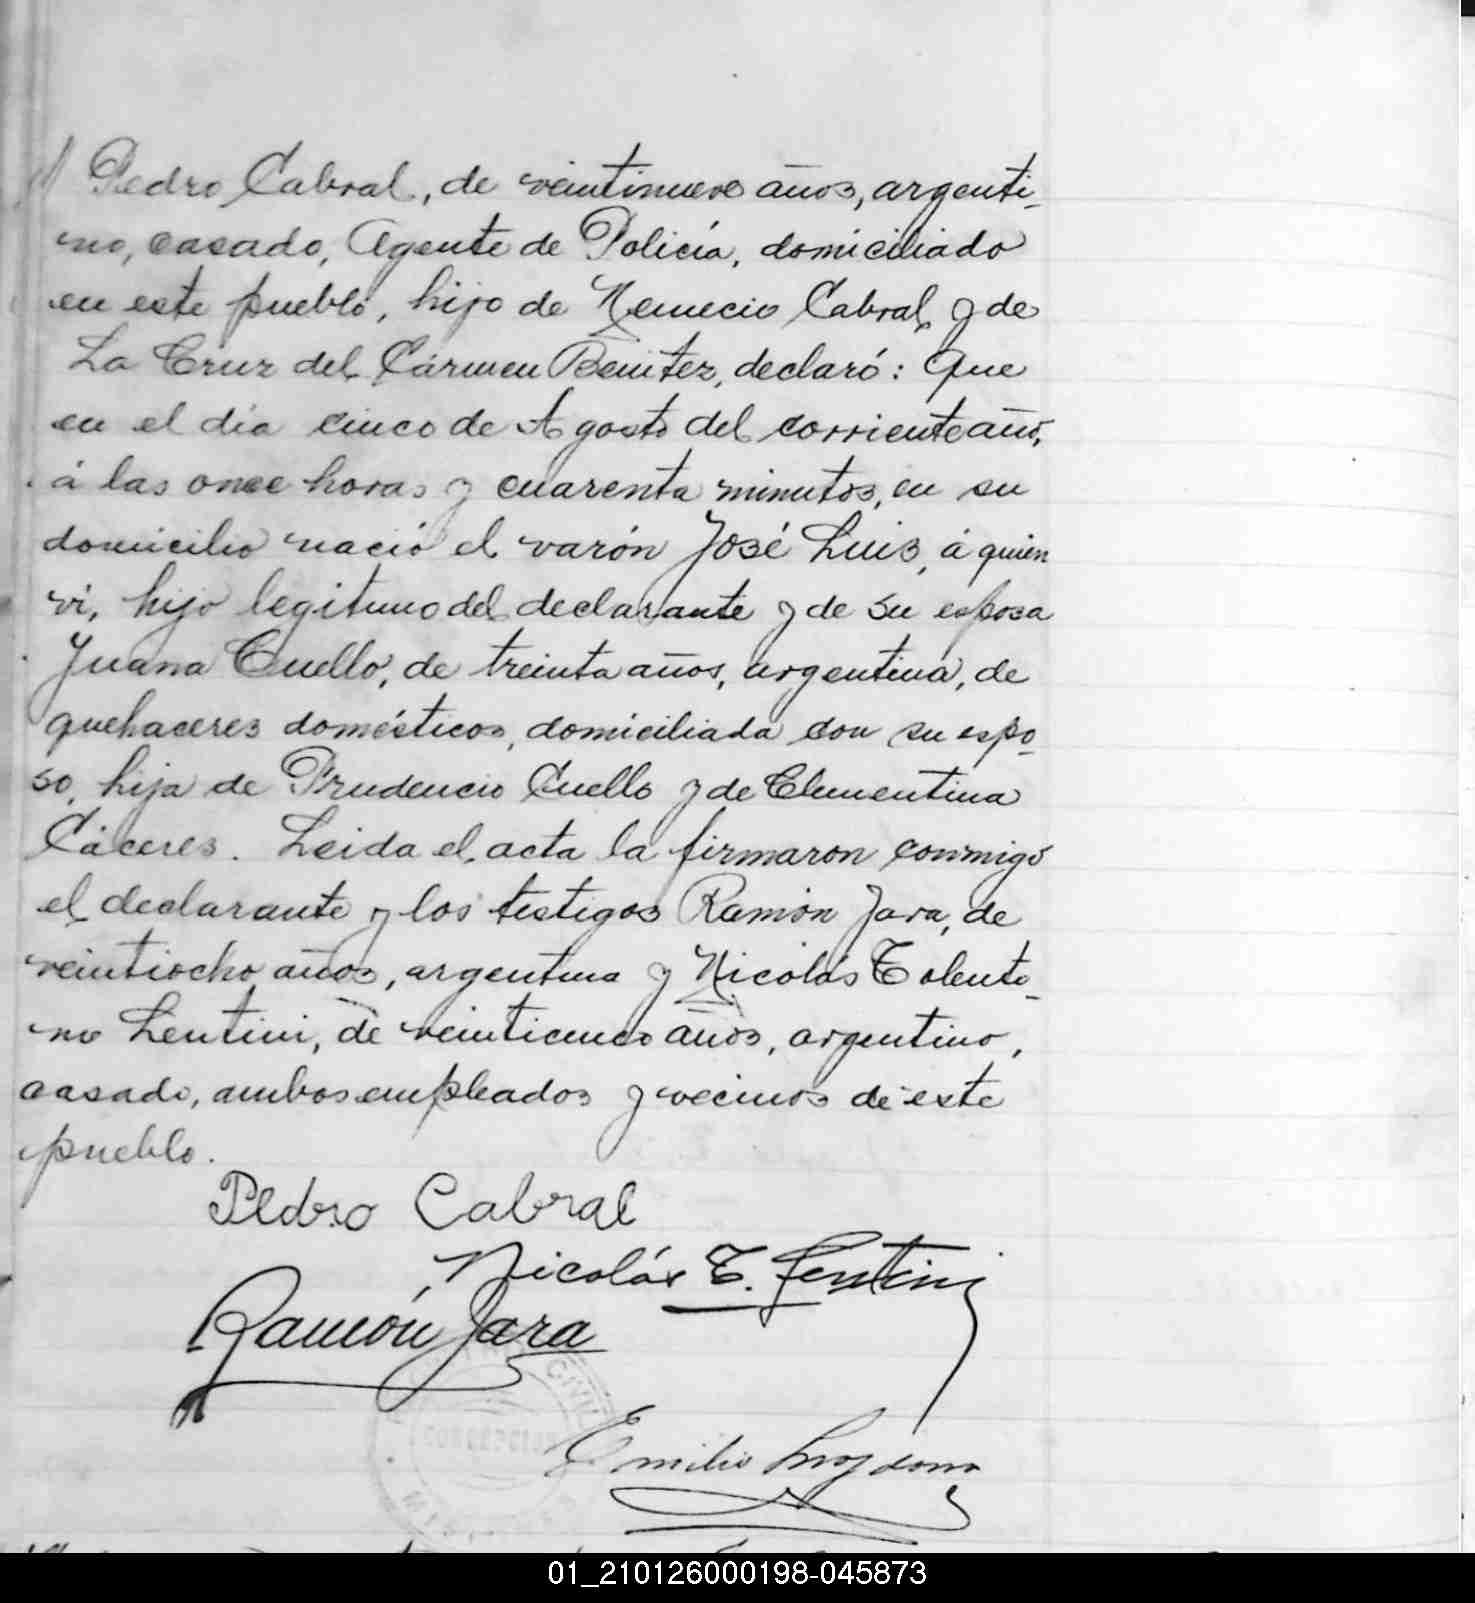 // Pedro Cabral, de veintinueve años, argenti-
no, casado, Agente de Policía, domiciliado
en este pueblo, hijo de Nemecio Cabral y de
La Cruz del Cármen Benitez, declaró: Que
en el día cinco de Agosto del corriente año,
á las once horas y cuarenta minutos, en su
domicilio nació el varón José Luis, á quien
vi, hijo legitimo del declarante y de su esposa
Juana Cuello, de treinta años, argentina, de
quehaceres domésticos, domiciliada con su espo-
so, hija de Prudencio Cuello y de Clementina
Cáceres. Leida el acta la firmaron conmigo
el declarante y los testigos Ramón Jara, de
veintiocho años, argentino y Nicolás Tolento-
no Lentini, de veinticinco años, argentino,
casado, ambos empleados y vecinos de este
pueblo.
Pedro Cabral
Nicolás T. Lentini
Ramón Jara
CIVIL
CONCEPCION
Emilio
MISIONES
01_210126000198-045873